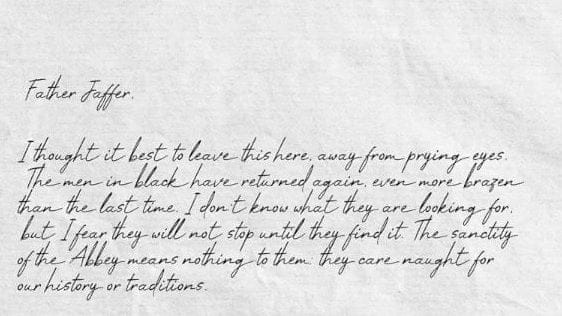 Father Jaffer,
I thought it best to leave this here, away from prying eyes.
The men in black have returned again, even more brazen
than the last time. I don't know what they are looking for,
but I fear they will not stop until they find it. The sanctity
of the Abbey means nothing to them; they care naught for
our history or traditions.